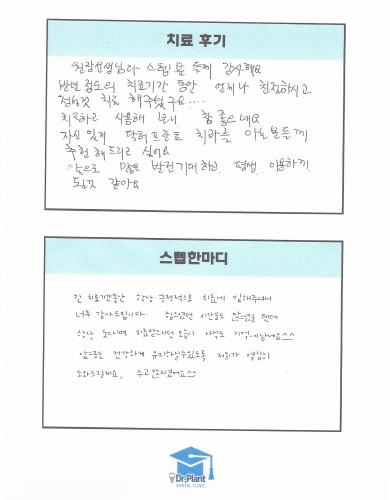 치료 후기
원장선생님과 스텝분 들께 감사해요
반년 정도의 치료기간 동안 언제나 친절하시고
치료 해주셨구요....
치료하고 사용해 보니 참 좋으네요
자신 있게 닥터플란트 치과를 아는분들께
추천 해드리고 싶어요
앞으로 많은 발전기대하고 평생 이용하게
될것 같아요
스텝한마디
긴 치료기간동안 항상 긍정적으로 치료에 임해주셔서
너무 감사드립니다. 힘드셨던 시간들도 많으셨을 텐데
항상 웃으시며 치료받으시던 모습이 아직도 기억에남네요^^
앞으로도 건강하게 유지하실수있도록 저희가 열심히
도와드릴게요. 수고많으셨어요^^
Dr.Plant
DENTAL CLINIC